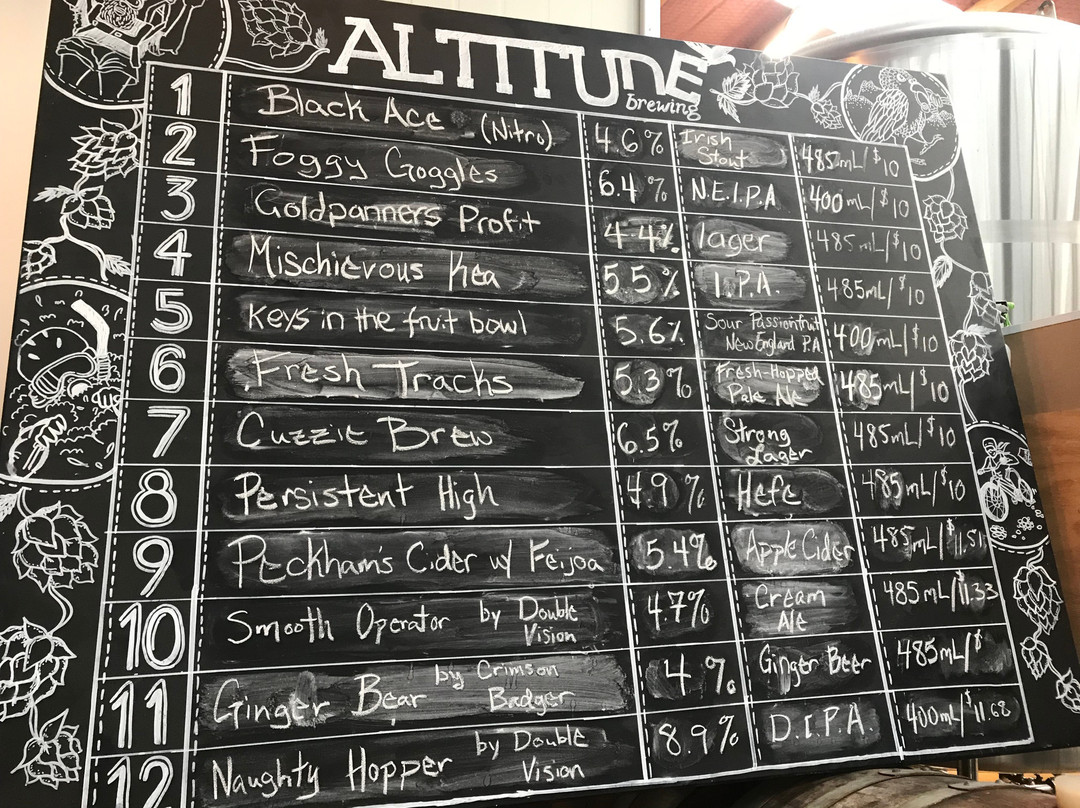 ALTITUDE
brewing
1 Black Ace (Nitro) 4.6% Irish Stout 485mL/$10
2 Foggy Goggles 6.4% N.E.I.P.A 400mL/$10
3 Goldpanners Profit 4.4% lager 485mL/$10
4 Mischievous Kea 5.5% I.P.A. 485mL/$10
5 Keys in the fruit bowl 5.6% Sour Passionfruit New England P.A 400mL/$10
6 Fresh Tracks 5.3% Fresh-Hopped Pale Ale 485mL/$10
7 Cuzzie Brew 6.5% Strong Lager 485mL/$10
8 Persistent High 4.9% Hefe 485mL/$10
9 Peckham's Cider w/ Feijoa 5.4% Apple Cider 485mL/$11.51
10 Smooth Operator by Double Vision 4.7% Cream Ale 485mL/$11.33
11 Ginger Bear by Crimson Badger 4% Ginger Beer 485mL/$
12 Naughty Hopper by Double Vision 8.9% D.I.P.A. 400mL/$11.68